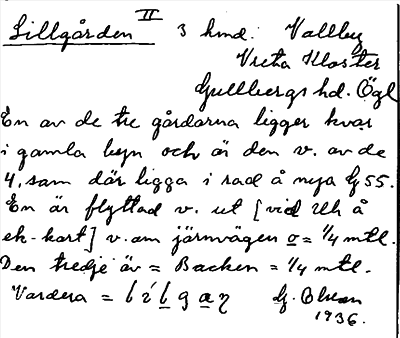 Lillgården II 3 hmd. Vallby
Vreta Kloster
Gullbergs hd. Ögl
En av de tre gårdarna ligger kvar
i gamla byn och är den v. av de
4, som där ligga i rad å nya Gg 55.
En är flyttad v. ut [vid Uh å
ek-kart] v. om järnvägen o = 1/4 mtl.
Den tredje är = Backen = 1/4 mtl.
Vardera =
G. Olson
1936.